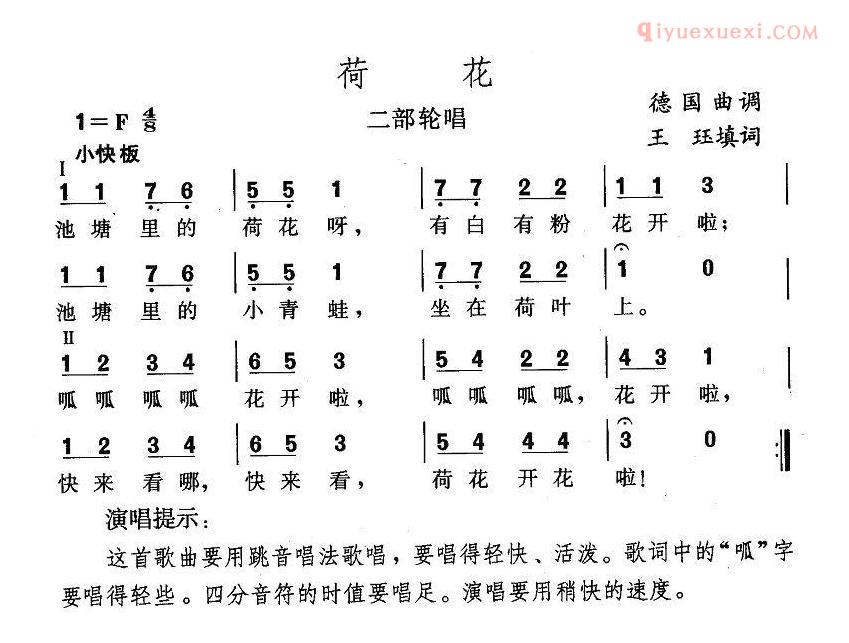 qiyuexuexi.COM
荷 花
德国曲调
1=F 4/8 二部轮唱
王 珏填词
小快板
I
1 1 7 6 | 5 5 1 | 7 7 2 2 | 1 1 3 |
池塘里的 荷花呀， 有白有粉 花开啦；
1 1 7 6 | 5 5 1 | 7 7 2 2 | 1 0 |
池塘里的 小青蛙， 坐在荷叶 上。
II
1 2 3 4 | 6 5 3 | 5 4 2 2 | 4 3 1 |
呱呱呱呱 花开啦， 呱呱呱呱， 花开啦，
1 2 3 4 | 6 5 3 | 5 5 4 4 | 3 0 :|
快来看哪， 快来看， 荷花开花 啦！
演唱提示：
这首歌曲要用跳音唱法歌唱，要唱得轻快、活泼。歌词中的“呱”字
要唱得轻些。四分音符的时值要唱足。演唱要用稍快的速度。